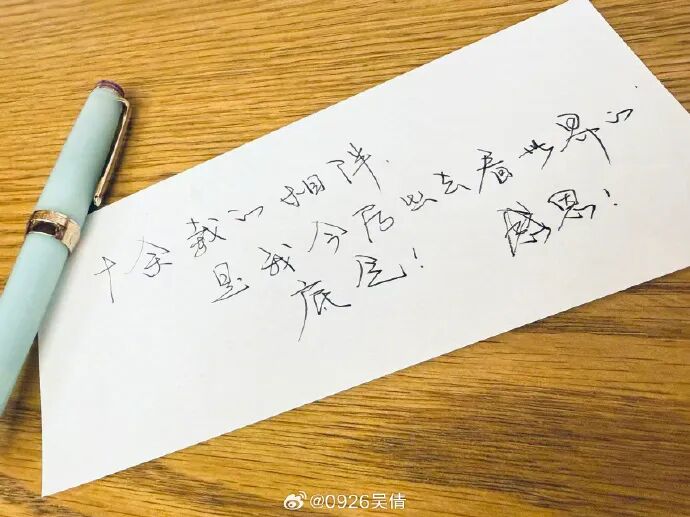 十余载的相伴.
是我今后出去看世界的
底气! 感恩!
@0926吴倩